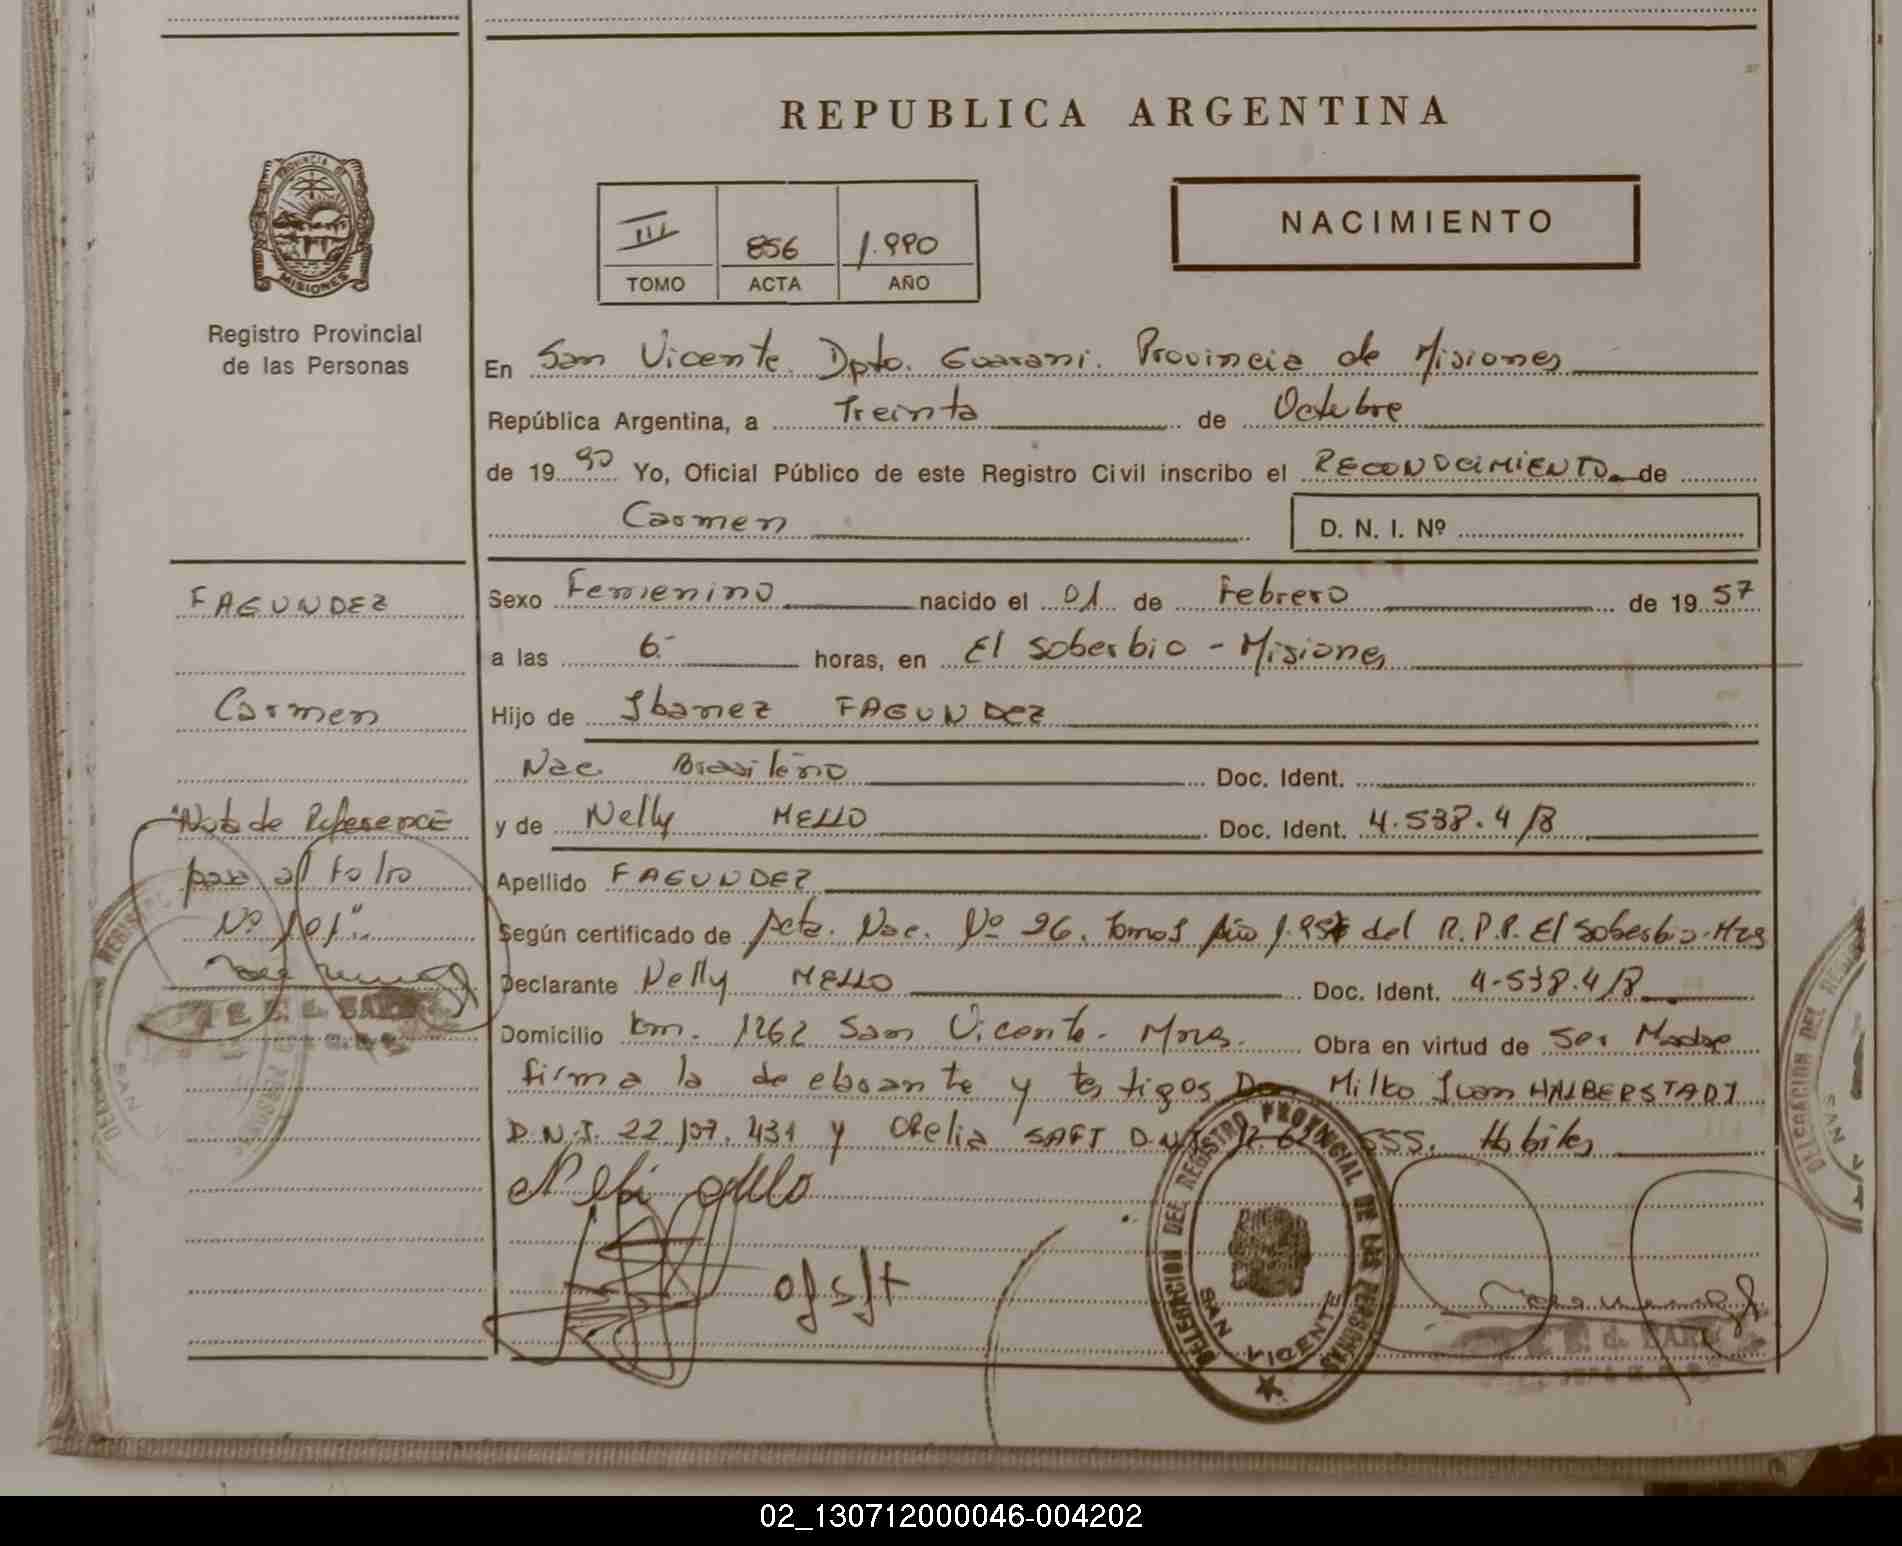 REPUBLICA ARGENTINA
PROVINCIA DE
MISIONES
Registro Provincial
de las Personas
III 856 1.990
TOMO ACTA AÑO
NACIMIENTO
En San Vicente. Dpto. Guarani. Provincia de Misiones
República Argentina, a Treinta de Octubre
de 19 90 Yo, Oficial Público de este Registro Civil inscribo el RECONOCIMIENTO de
Carmen
D. N. I. Nº
FAGUNDEZ
Carmen
"Nota de Referencia
para al folio
Nº 101"
Sexo Femenino nacido el 01 de Febrero de 19 57
a las 6 horas, en El Soberbio - Misiones
Hijo de Ibanez FAGUNDEZ
Nac. Brasileño Doc. Ident.
y de Nelly MELLO Doc. Ident. 4.538.418
Apellido FAGUNDEZ
Según certificado de Acta. Nac. Nº 26. Tomo I Año 1.957 del R.P.P. El Soberbio-Mzs
Declarante Nelly MELLO Doc. Ident. 4.538.418
Domicilio Km. 1262 San Vicente - Mnes. Obra en virtud de ser Madre
firma la declarante y testigos Don Milto Juan HALBERSTADT
D.N.I. 22.107.431 y Ofelia SAFT D.N.I. 555. Habiles
DELEGACION DEL REGISTRO PROVINCIAL DE LAS PERSONAS
SAN VICENTE
DELEGACION DEL
SAN
02_130712000046-004202